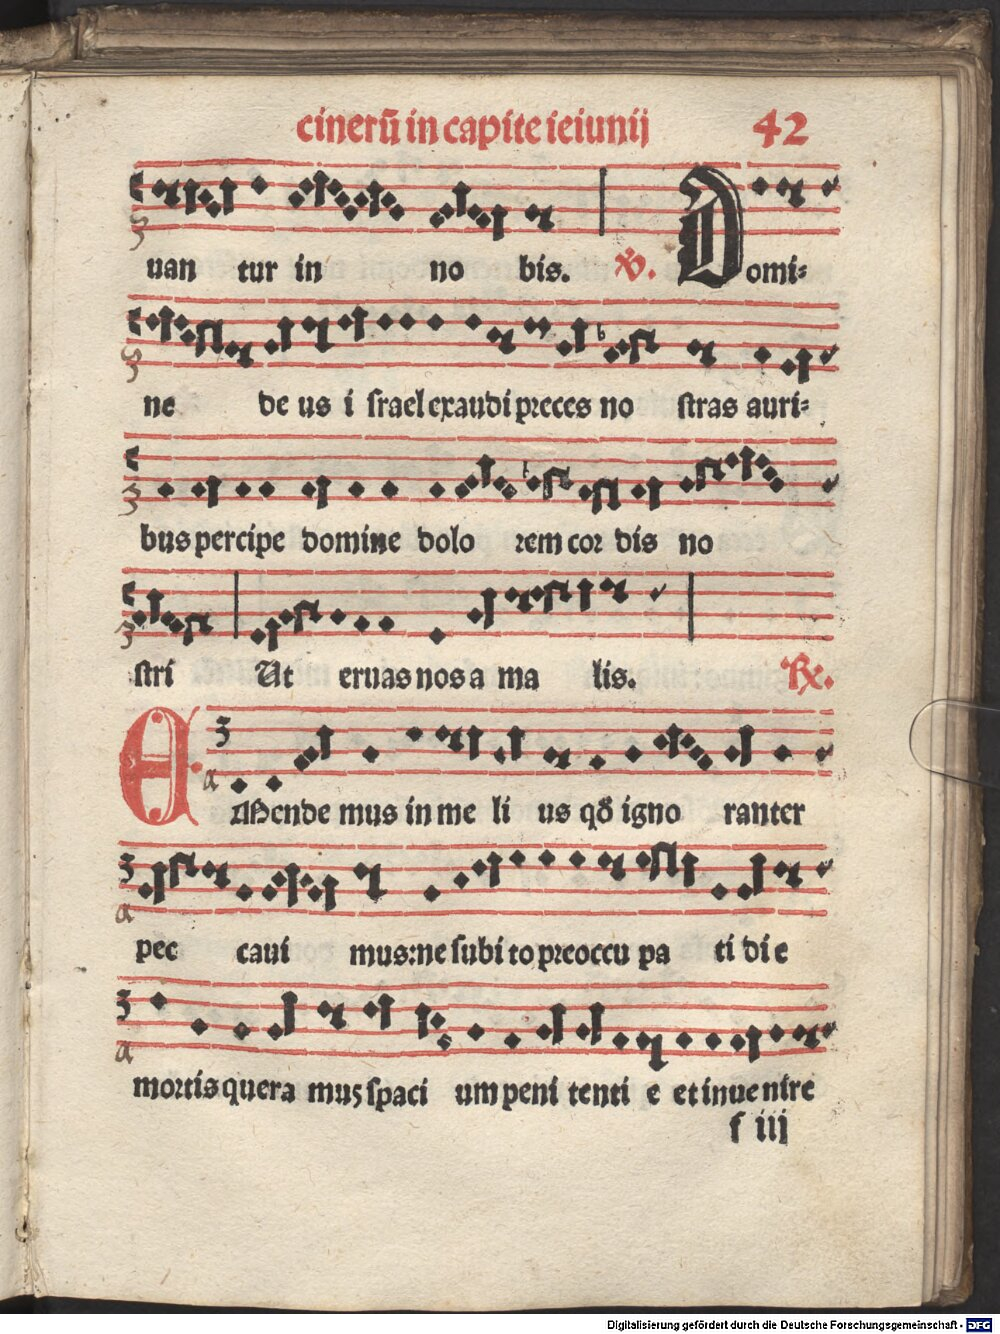 cinerũ in capite ieiunij 42
uan tur in no bis. ℣. Domi⸗
ne de us i srael exaudi preces no stras auri⸗
bus percipe domine dolo rem cor dis no
stri Ut eruas nos a ma lis. ℟.
EMende mus in me li us qđ igno ranter
pec caui mus: ne subi to preoccu pa ti di e
mortis quera mus spaci um peni tenti e et inuenire
f iij
Digitalisierung gefördert durch die Deutsche Forschungsgemeinschaft - DFG